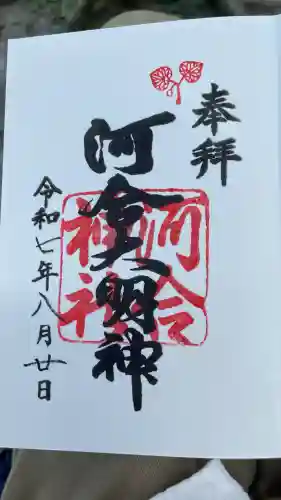 奉拝
河合大明神
河合神社
令和七年八月廿日